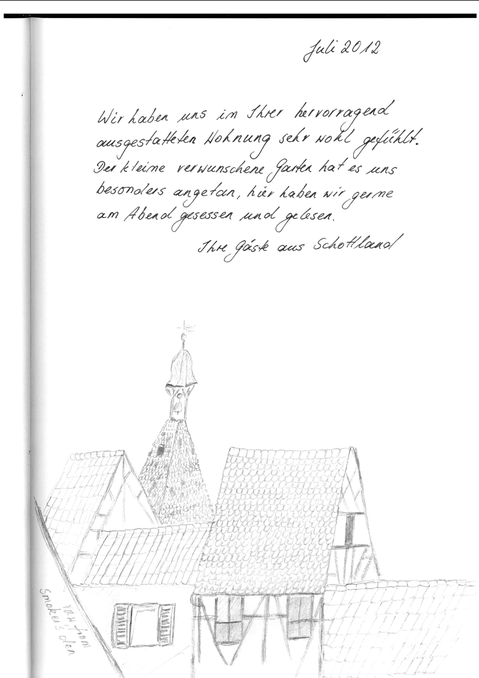 Juli 2012
Wir haben uns im Ihrer hervorragend
ausgestatteten Wohnung sehr wohl gefühlt.
Der kleine verwunschene Garten hat es uns
besonders angetan, hier haben wir gerne
am Abend gesessen und gelesen.
Ihre Gäste aus Schottland
view from
Smoker's den